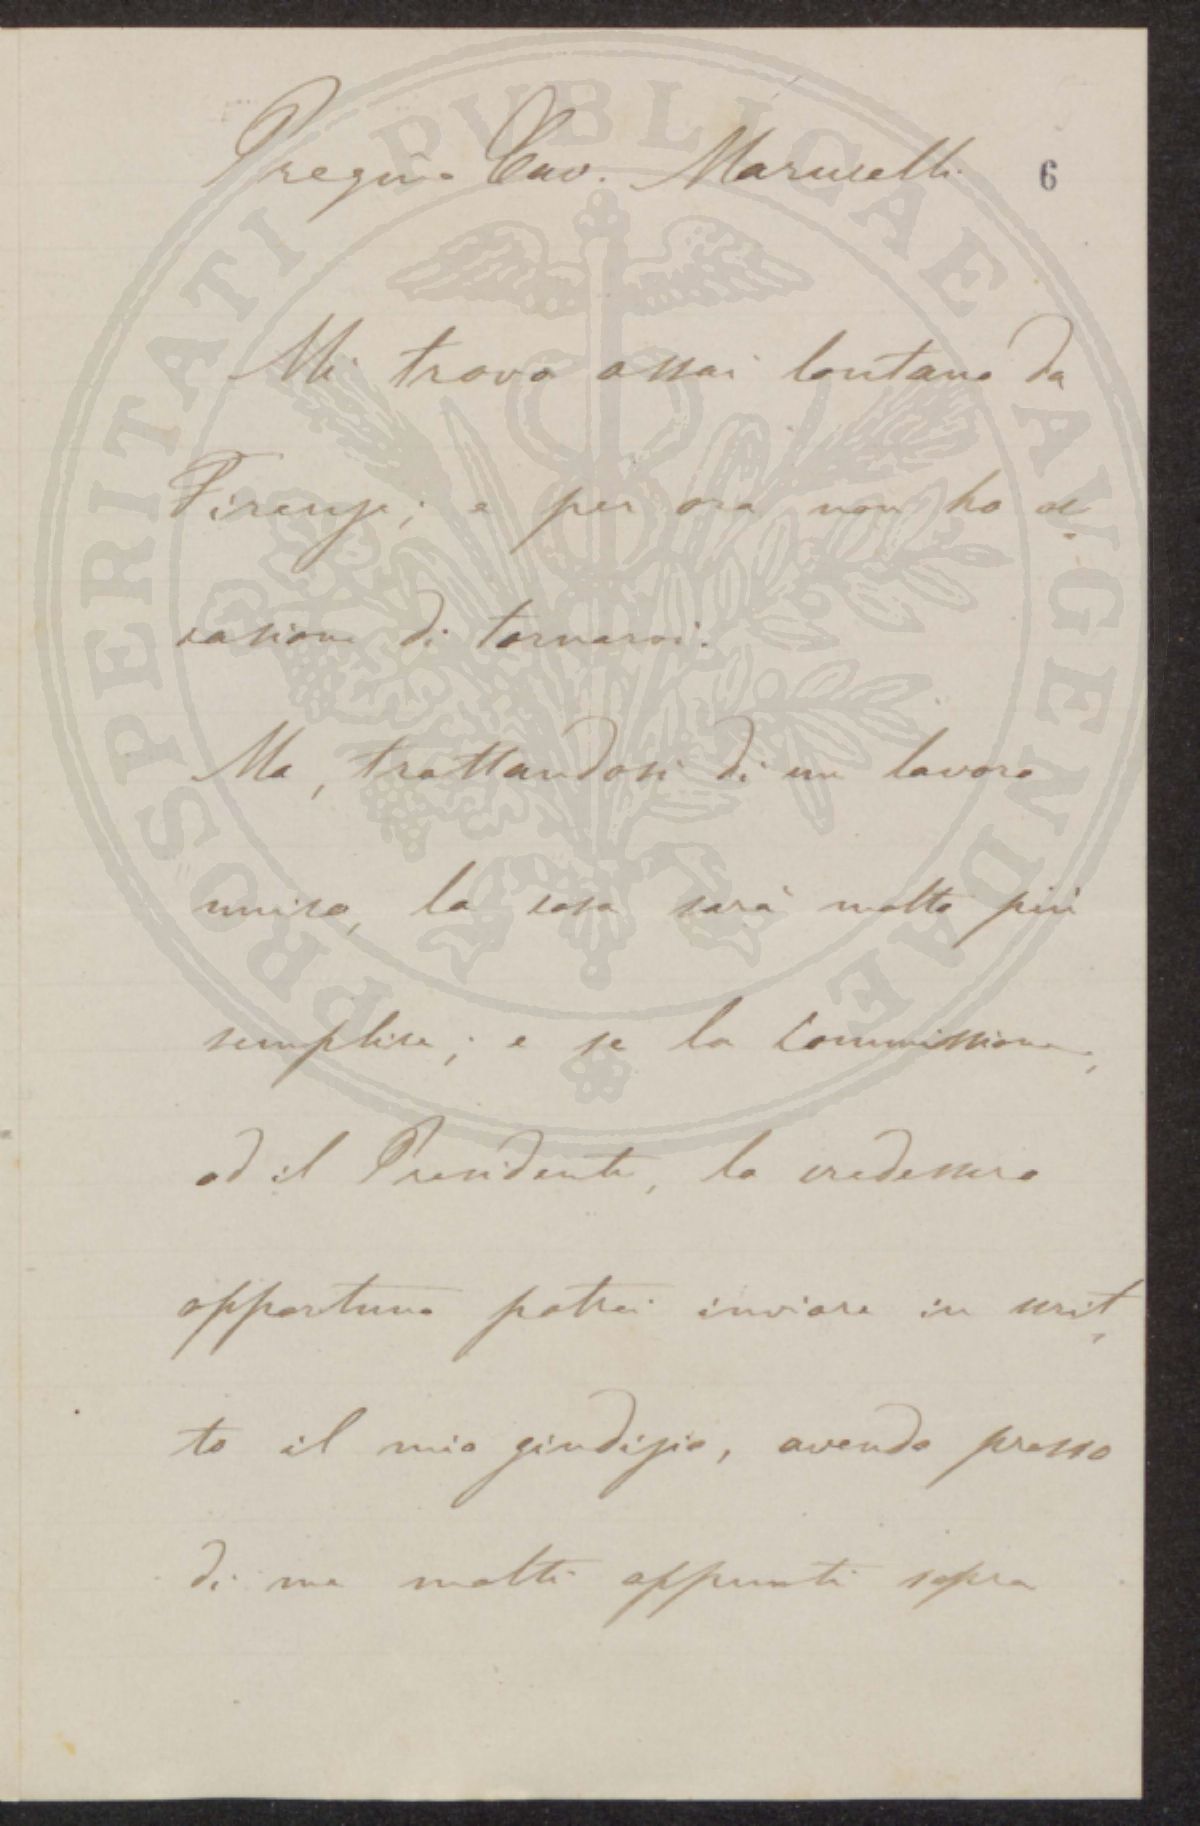 Pregmo Cav. Marucelli
6
Mi trovo assai lontano da
Firenze; e per ora non ho oc
casione di tornarvi.
Ma, trattandosi di un lavoro
unico, la cosa sarà molto più
semplice; e se la Commissione,
od il Presidente, lo credessero
opportuno potrei inviare in scrit
to il mio giudizio, avendo presso
di me molti appunti sopra
PROSPERITATI PVBLICAE AVGENDAE